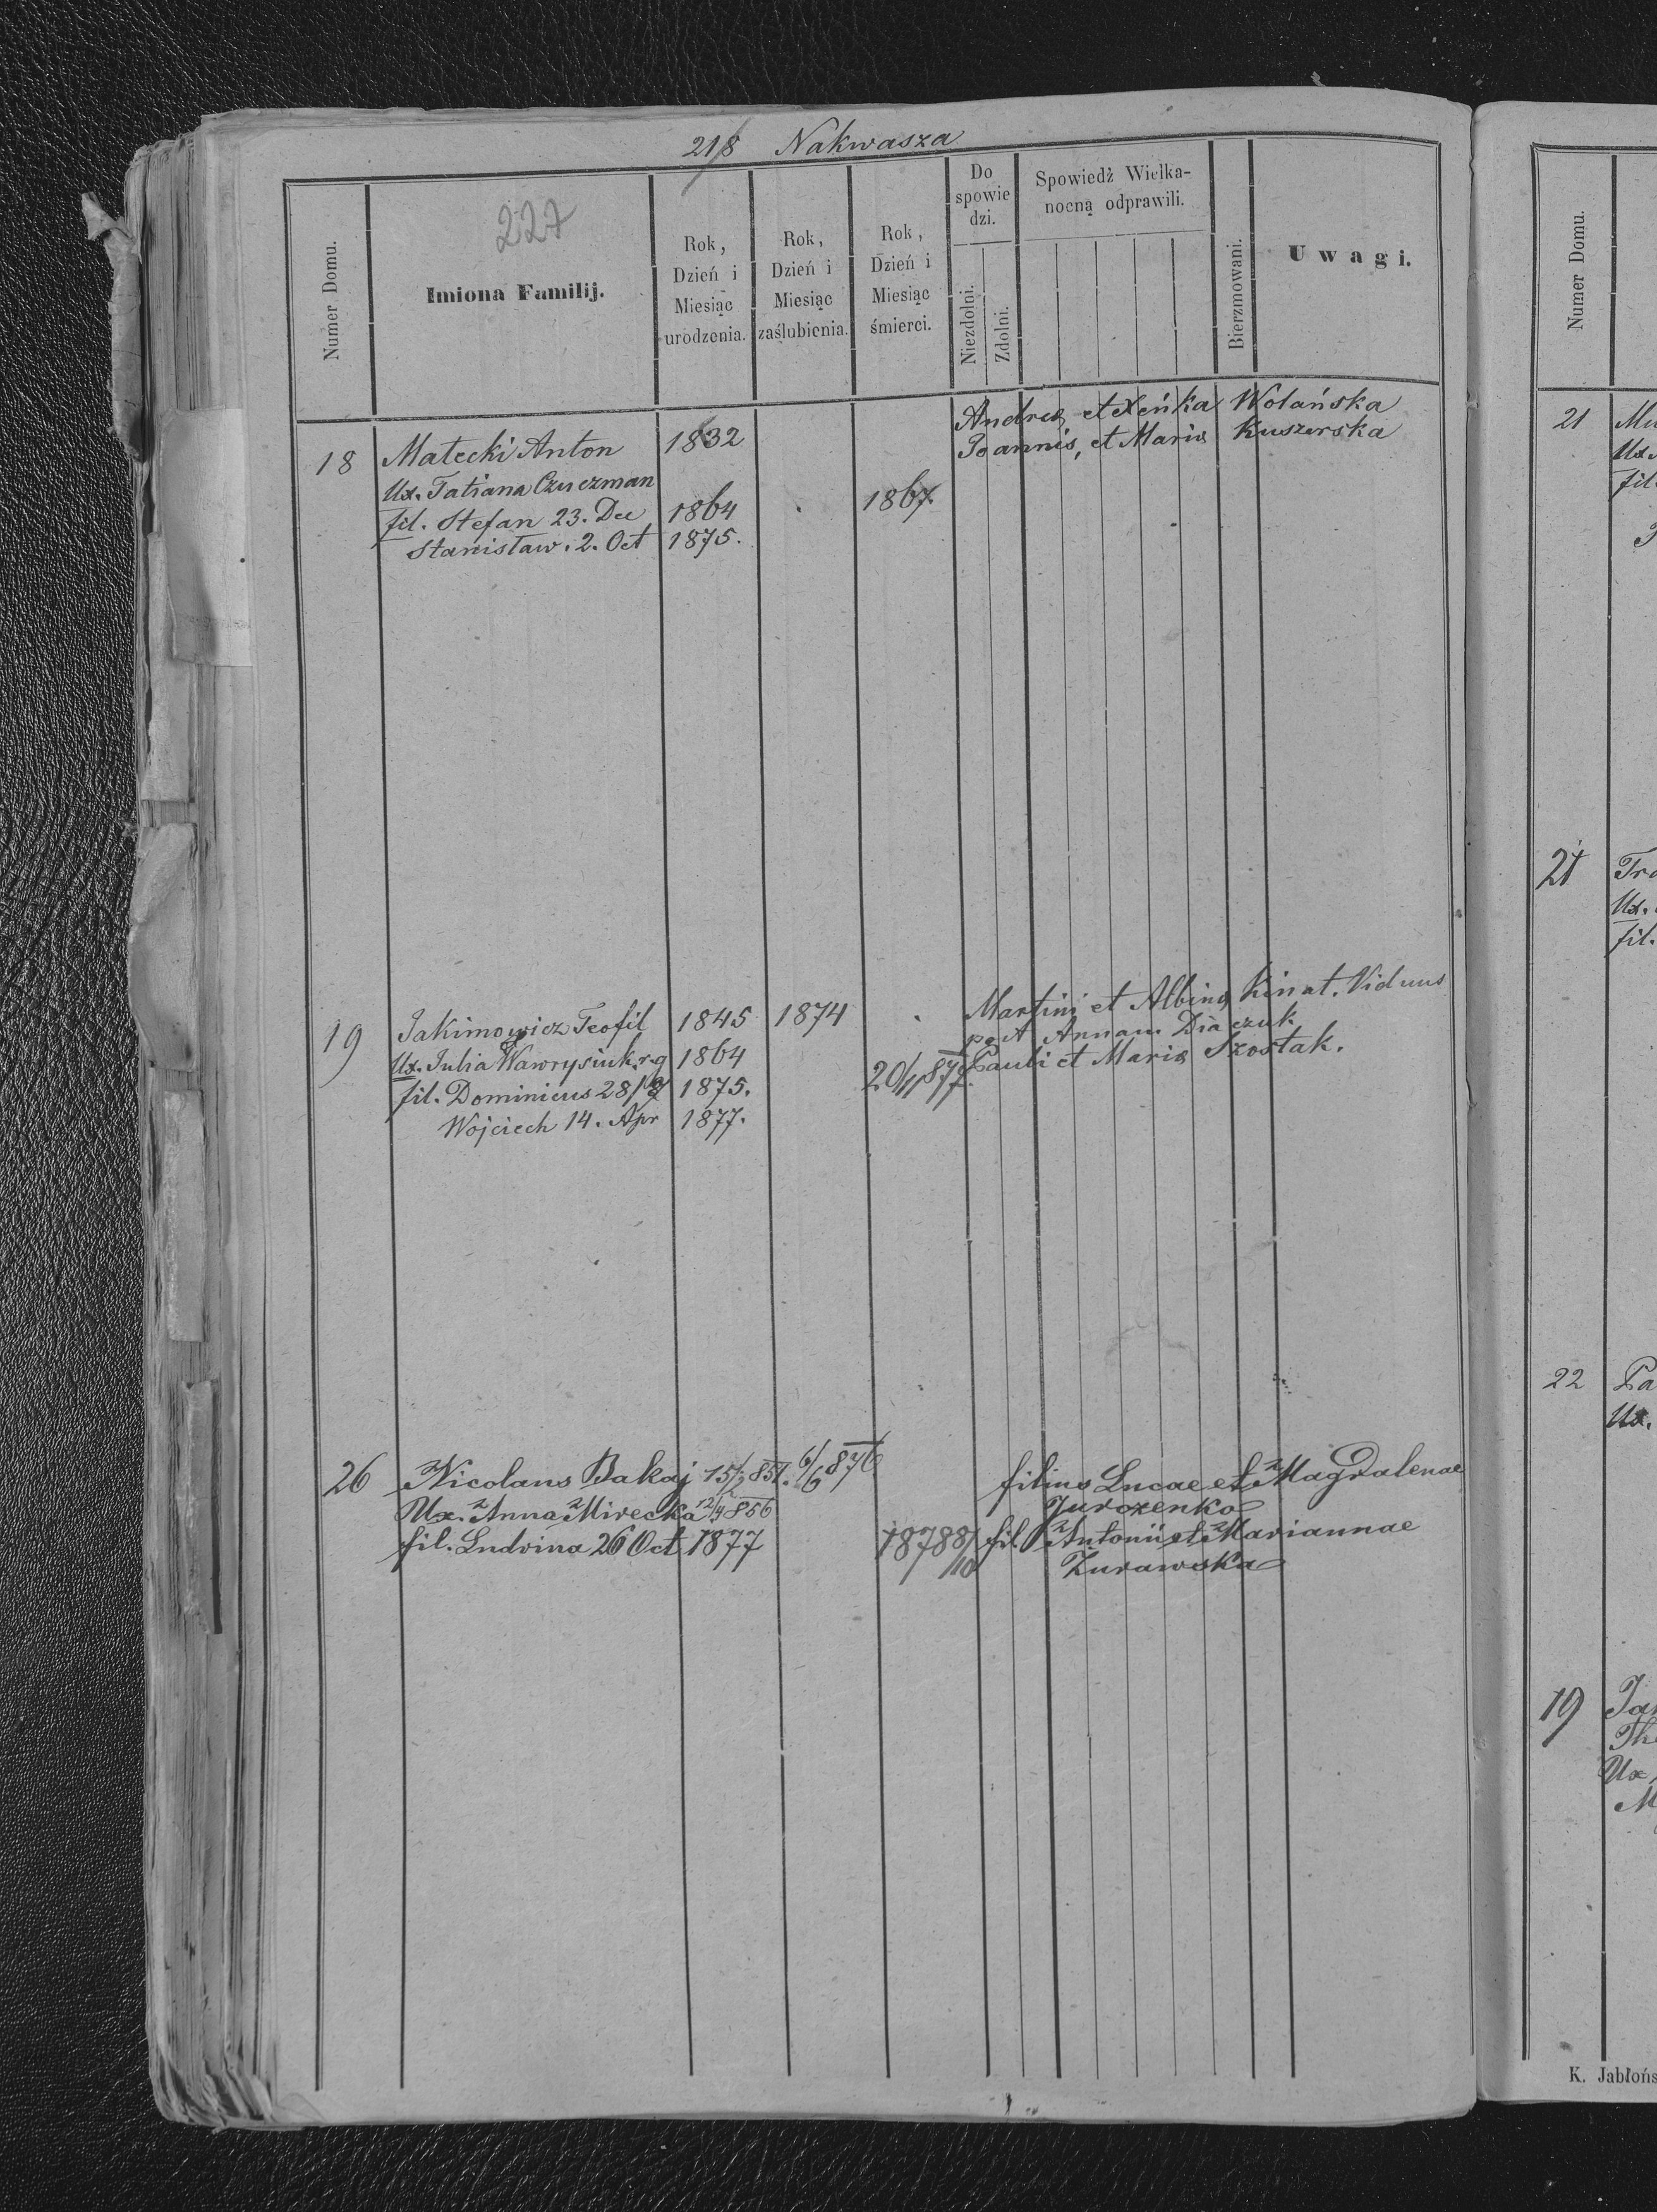 218 Nakwasza
227
Numer Domu.
Imiona Familij.
Rok, Dzień i Miesiąc urodzenia.
Rok, Dzień i Miesiąc zaślubienia.
Rok, Dzień i Miesiąc śmierci.
Do spowiedzi.
Niezdolni.
Zdolni.
Spowiedź Wielkanocną odprawili.
Bierzmowani.
Uwagi.
18 Małecki Anton 1832 Andreæ et Xeńka Wolańska
Ux. Tatiana Czuczman Joannis, et Mariæ Kuszerska
fil. Stefan 23. Dec 1864 1867
Stanisław. 2. Oct 1875.
19 Jakimowicz Teofil 1845 1874 Martini et Albinæ Kinat. Viduus
post Annam Diaczuk
Ux. Julia Wawrysiuk r.g 1864 Pauli et Mariæ Szostak.
fil. Dominicus 28/8 1875. 20/11 877.
Wojciech 14. Apr 1877.
26 Nicolaus Bakaj 15/2 851. 6/6 876 filius Lucae et Magdalenae
Jurozenko
Ux. Anna Mirecka 12/4 856 fil Antonii et Mariannae
Żurawska
fil. Ludvina 26 Oct 1877 1878 8/10
Numer Domu.
21
Ux.
fil.
21
Ux.
fil.
22
Ux.
19
Ux
K. Jabłońs